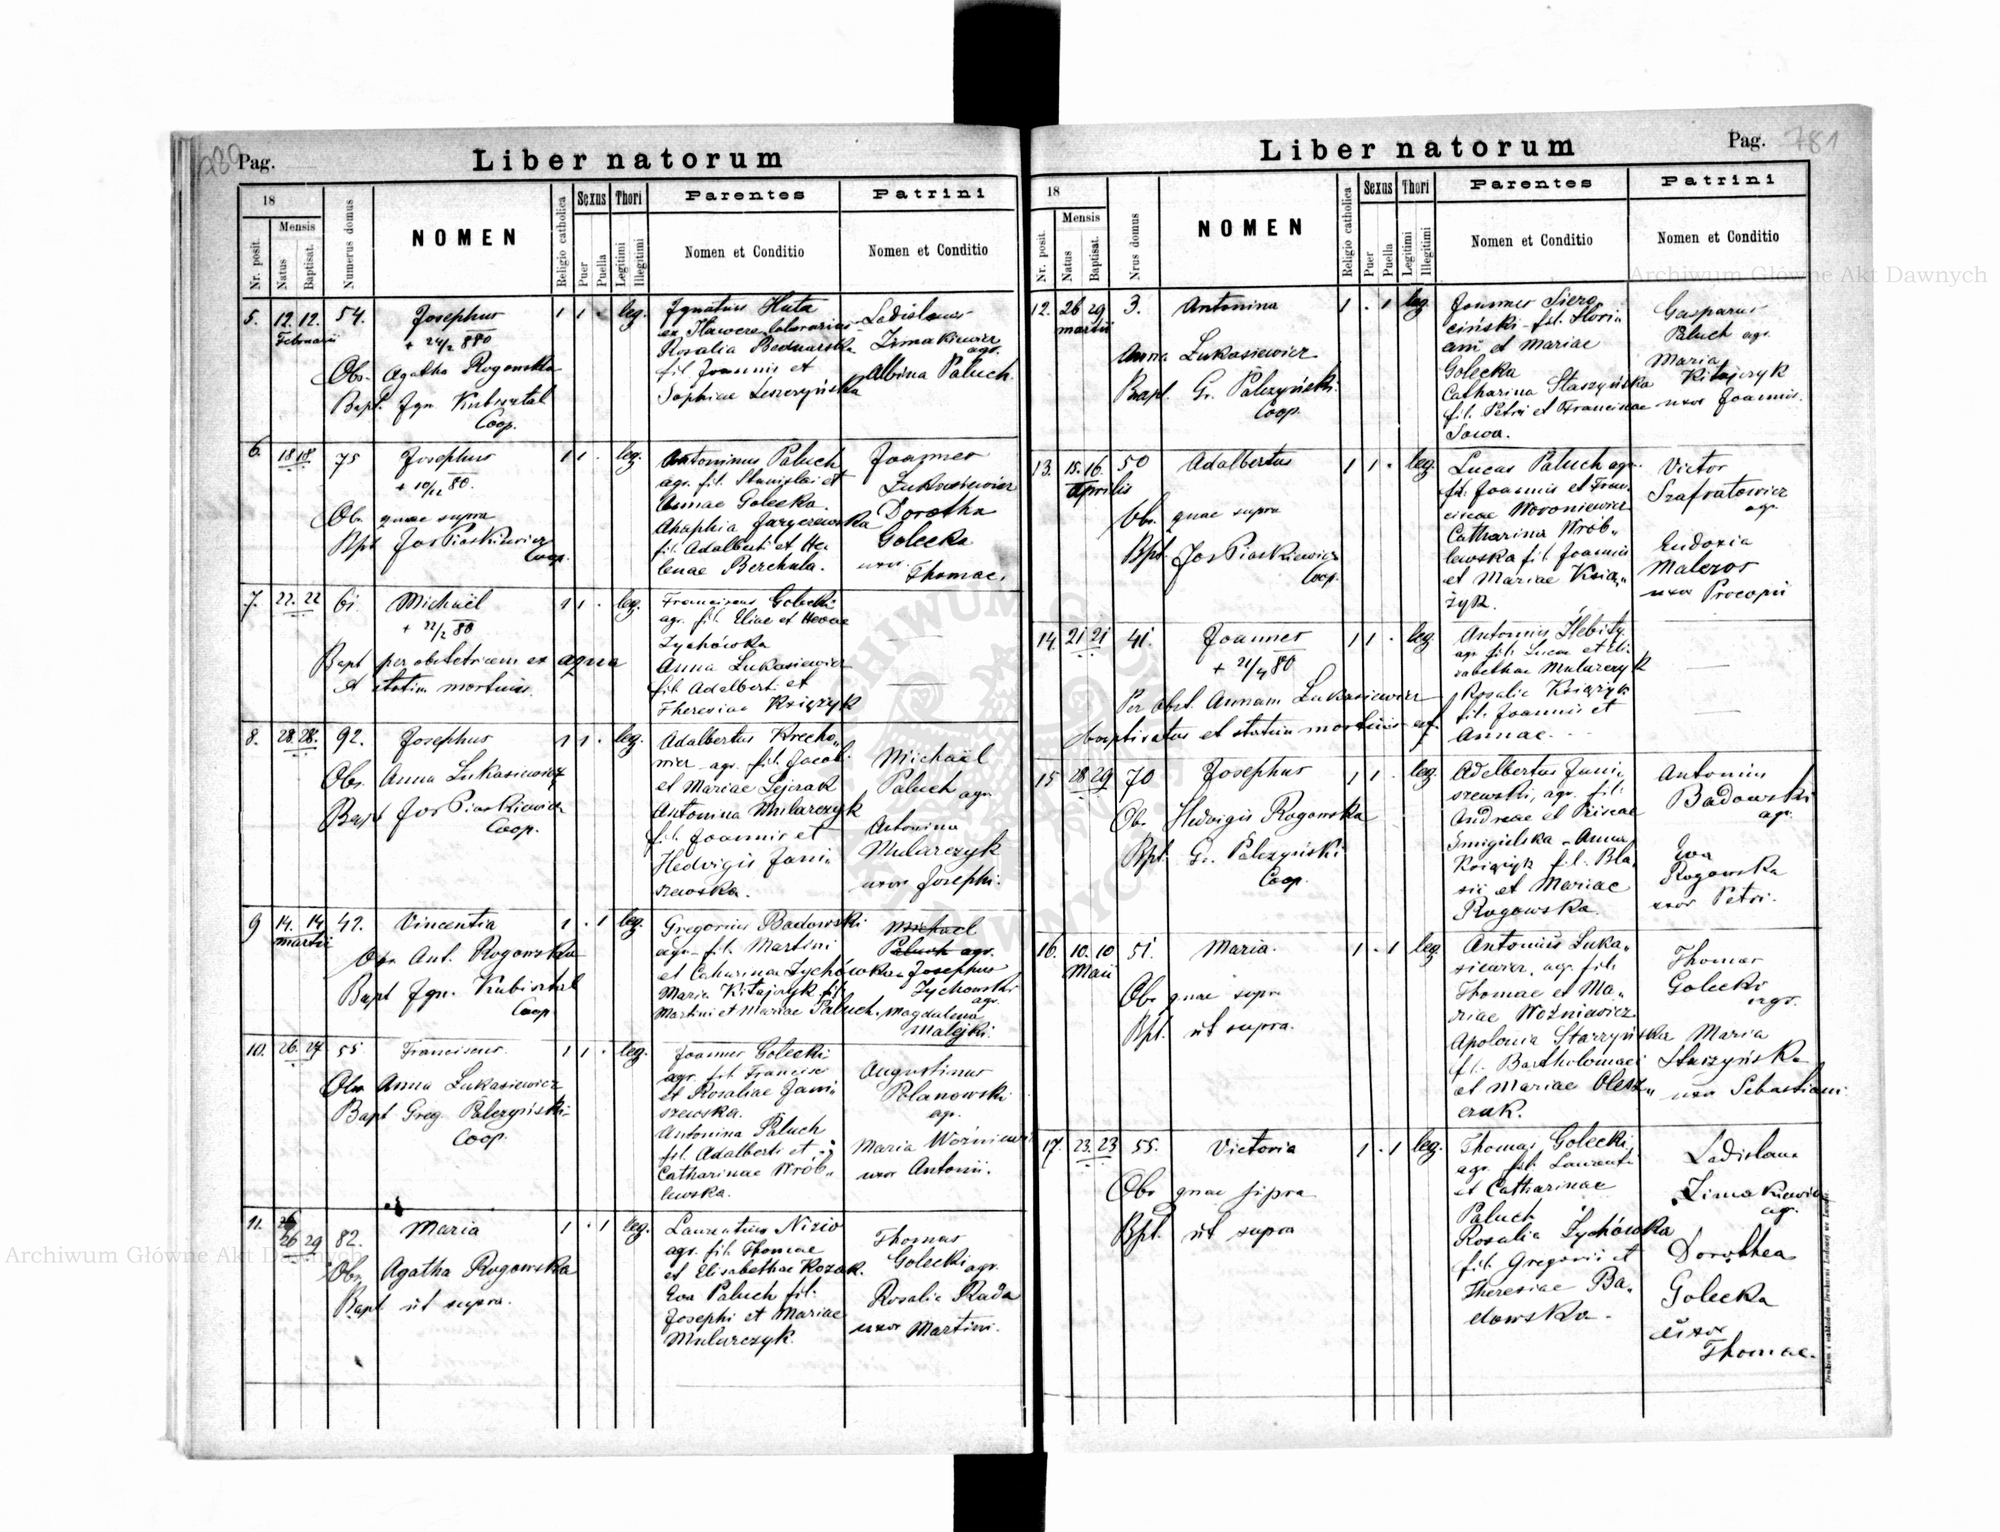 Pag.
Liber natorum
18
Nr. posit.
Mensis
Natus
Baptisat.
Numerus domus
NOMEN
Religio catholica
Sexus
Puer
Puella
Thori
Legitimi
Illegitimi
Parentes
Nomen et Conditio
Patrini
Nomen et Conditio
5. 12. 12. 54. Josephus 1 1 . leg. Ignatius Huta Ladislaus
Februarii + 24/2 880 laborarius Zimakiewicz
Rosalia Bednarska agr.
Obs. Agatha Rogowska fil. Joannis et Albina Paluch.
Bapt. Ign. Kubisztal Sophiae Leszczyńska
Coop.
6. 18 18 75 Josephus 1 1 . leg. Antoninus Paluch Joannes
+ 10/12 80. agr. fil. Stanislai et Lukasiewicz
Annae Golecka. Dorothea
Obs. quae supra
Bpt Jos Piaskiewicz fil. Adalberti et He Golecka
Coop. lenae Berchula. uxor Thomae.
7. 22. 22 61. Michaël 1 1 . leg. Franciscus Golecki
+ 22/2 80 agr. fil. Eliae et
Zychówska
Bapt per obstetricem ex aqua Anna Lukasiewicz
et statim mortuus. fil. Adalberti et
Theresiae Książyk
8. 28. 28. 92. Josephus 1 1 . leg. Adalbertus Krecho„
wicz agr. fil. Jacobi Michaël
Obs. Anna Lukasiewicz et Mariae Lejczak Paluch agr.
Bapt Jos Piaskiewicz Antonina Mularczyk Antonina
Coop. fil. Joannis et Mularczyk
Hedvigis Jani„ uxor Josephi.
szewska.
9 14. 14 42. Vincentia 1 . 1 leg. Gregorius Badowski Michael
martii agr. fil. Martini Paluch agr.
Obs. Ant. Rogowska et Catharinae Zychówska Josephus
Bapt Ign. Kubisztal Maria Kitajczyk fil. Zychowski
Coop. Martini et Mariae Paluch. agr.
Magdalena
Malejki.
10. 26. 27 55 Franciscus. 1 1 . leg. Joannes Golecki Augustinus
agr. fil. Francisci Polanowski
Obs. Anna Lukasiewicz et Rosaliae Jani„ ag.
Bapt Greg. Palczyński szewska.
Coop. Antonina Paluch Maria
fil. Adalberti et uxor Antonii.
Catharinae Wrób„
lewska.
11. 26 29 82. Maria 1 . 1 leg. Laurentius Nizio Thomas
agr. fil. Thomae Golecki agr.
Obs. Agatha Rogowska et Elisabethae Kozak. Rosalia Rada
Bapt ut supra. Eva Paluch fil. uxor Martini.
Josephi et Mariae
Mularczyk.
Liber natorum
Pag. 781
18
Nr. posit.
Mensis
Natus
Baptisat.
Nrus domus
NOMEN
Religio catholica
Sexus
Puer
Puella
Thori
Legitimi
Illegitimi
Parentes
Nomen et Conditio
Patrini
Nomen et Conditio
12. 26 29 3. Antonina 1 . 1 leg. Joannes Siero Gasparus
martii ciński fil. Flori„ Paluch agr.
ani et Mariae Maria
Anna Lukasiewicz Golecka Kitajczyk
Bapt. Gr. Palczyński Catharina Staszyńska uxor Joannis.
Coop. fil. Petri et Franciscae
Sowa.
13. 15. 16. 50 Adalbertus 1 1 . leg. Lucas Paluch agr. Victor
Aprilis fil. Joannis et Fran„ Szafratowicz
ciscae Woroniewicz agr.
Obs. quae supra Catharina Wrób„ Eudoxia
Bpt. Jos Piaskiewicz lewska fil. Joannis Malczos
Coop. et Mariae Ksią„ uxor Procopii
żyk.
14. 21 21 41. Joannes 1 1 . leg. Antonius
+ 21/4 80 agr. fil. Lucae et Eli
sabethae Mularczyk
Per obst. Annam Lukasiewicz Rosalia Książyk
baptisatus et statim mortuus est fil. Joannis et
Annae.
15 28 29 70 Josephus 1 1 . leg. Adalbertus Jani„ Antonius
szewski, agr. fil. Badowski
Obs. Hedvigis Rogowska Andreae et Priscae agr.
Bpt. Gr. Palczyński Smigulska - Anna Eva
Coop. Książyk fil. Bla„ Rogowska
sii et Mariae uxor Petri.
Rogowska.
16. 10. 10 51. Maria. 1 . 1 leg. Antonius Luka„ Thomas
Maii siewicz, agr. fil. Golecki
Thomae et Ma„ agr.
Obs quae supra riae Woźniewicz
Bpt. ut supra. Apolonia Starzyńska Maria
fil. Bartholomaei Starzyńska
et Mariae Olesz„ uxor Sebastiani
czak.
17. 23. 23 55. Victoria 1 . 1 leg. Thomas Golecki, Ladislaus
agr. fil. Laurentii Zimakiewicz
Obs quae supra et Catharinae ag.
Paluch
Bpt. ut supra Rosalia Zychówska Dorothea
fil. Gregorii et Golecka
Theresiae Ba„ uxor
dowska. Thomae.
Archiwum Główne Akt Dawnych
Archiwum Główne Akt Dawnych